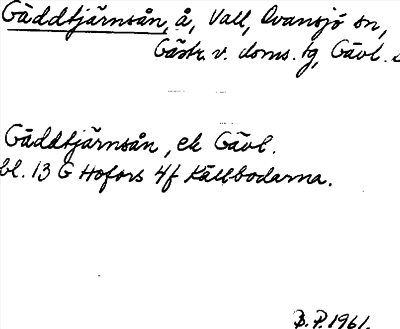 Gäddtjärnsån, å, Vall, Ovansjö sn,
Gästr. v. doms. tg, Gävl.
Gäddtjärnsån, ek Gävl.
bl. 13 G Hofors 4f Källbodarna.
B.P. 1961.